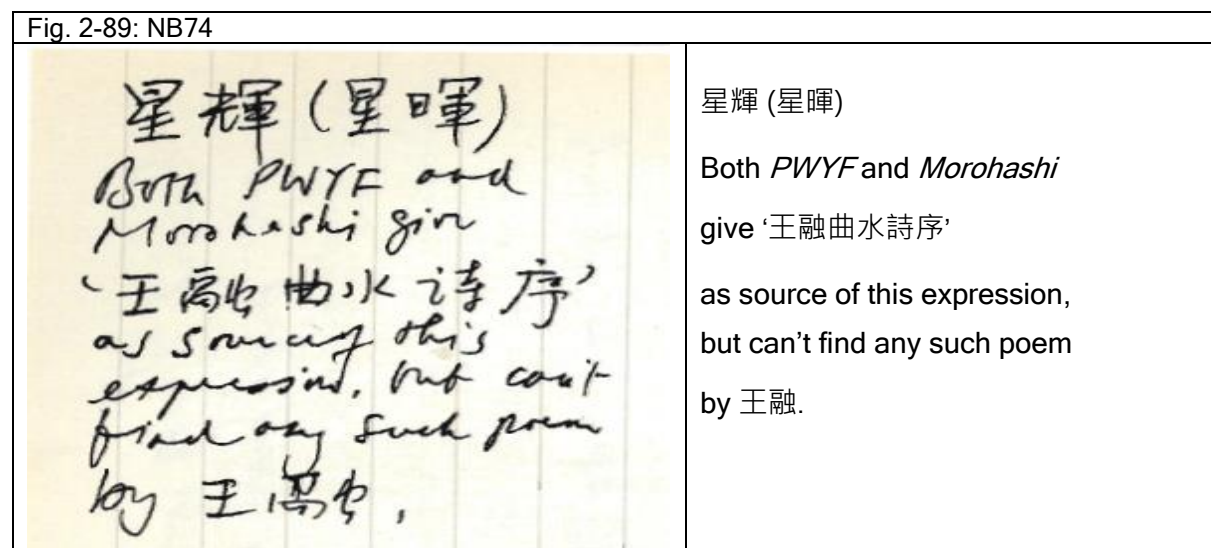 Fig. 2-89: NB74
星輝 (星暉)
Both PWYF and
Morohashi give
‘王融曲水詩序’
as source of this
expression, but can't
find any such poem
by 王融.
星輝 (星暉)
Both PWYF and Morohashi
give ‘王融曲水詩序’
as source of this expression,
but can’t find any such poem
by 王融.